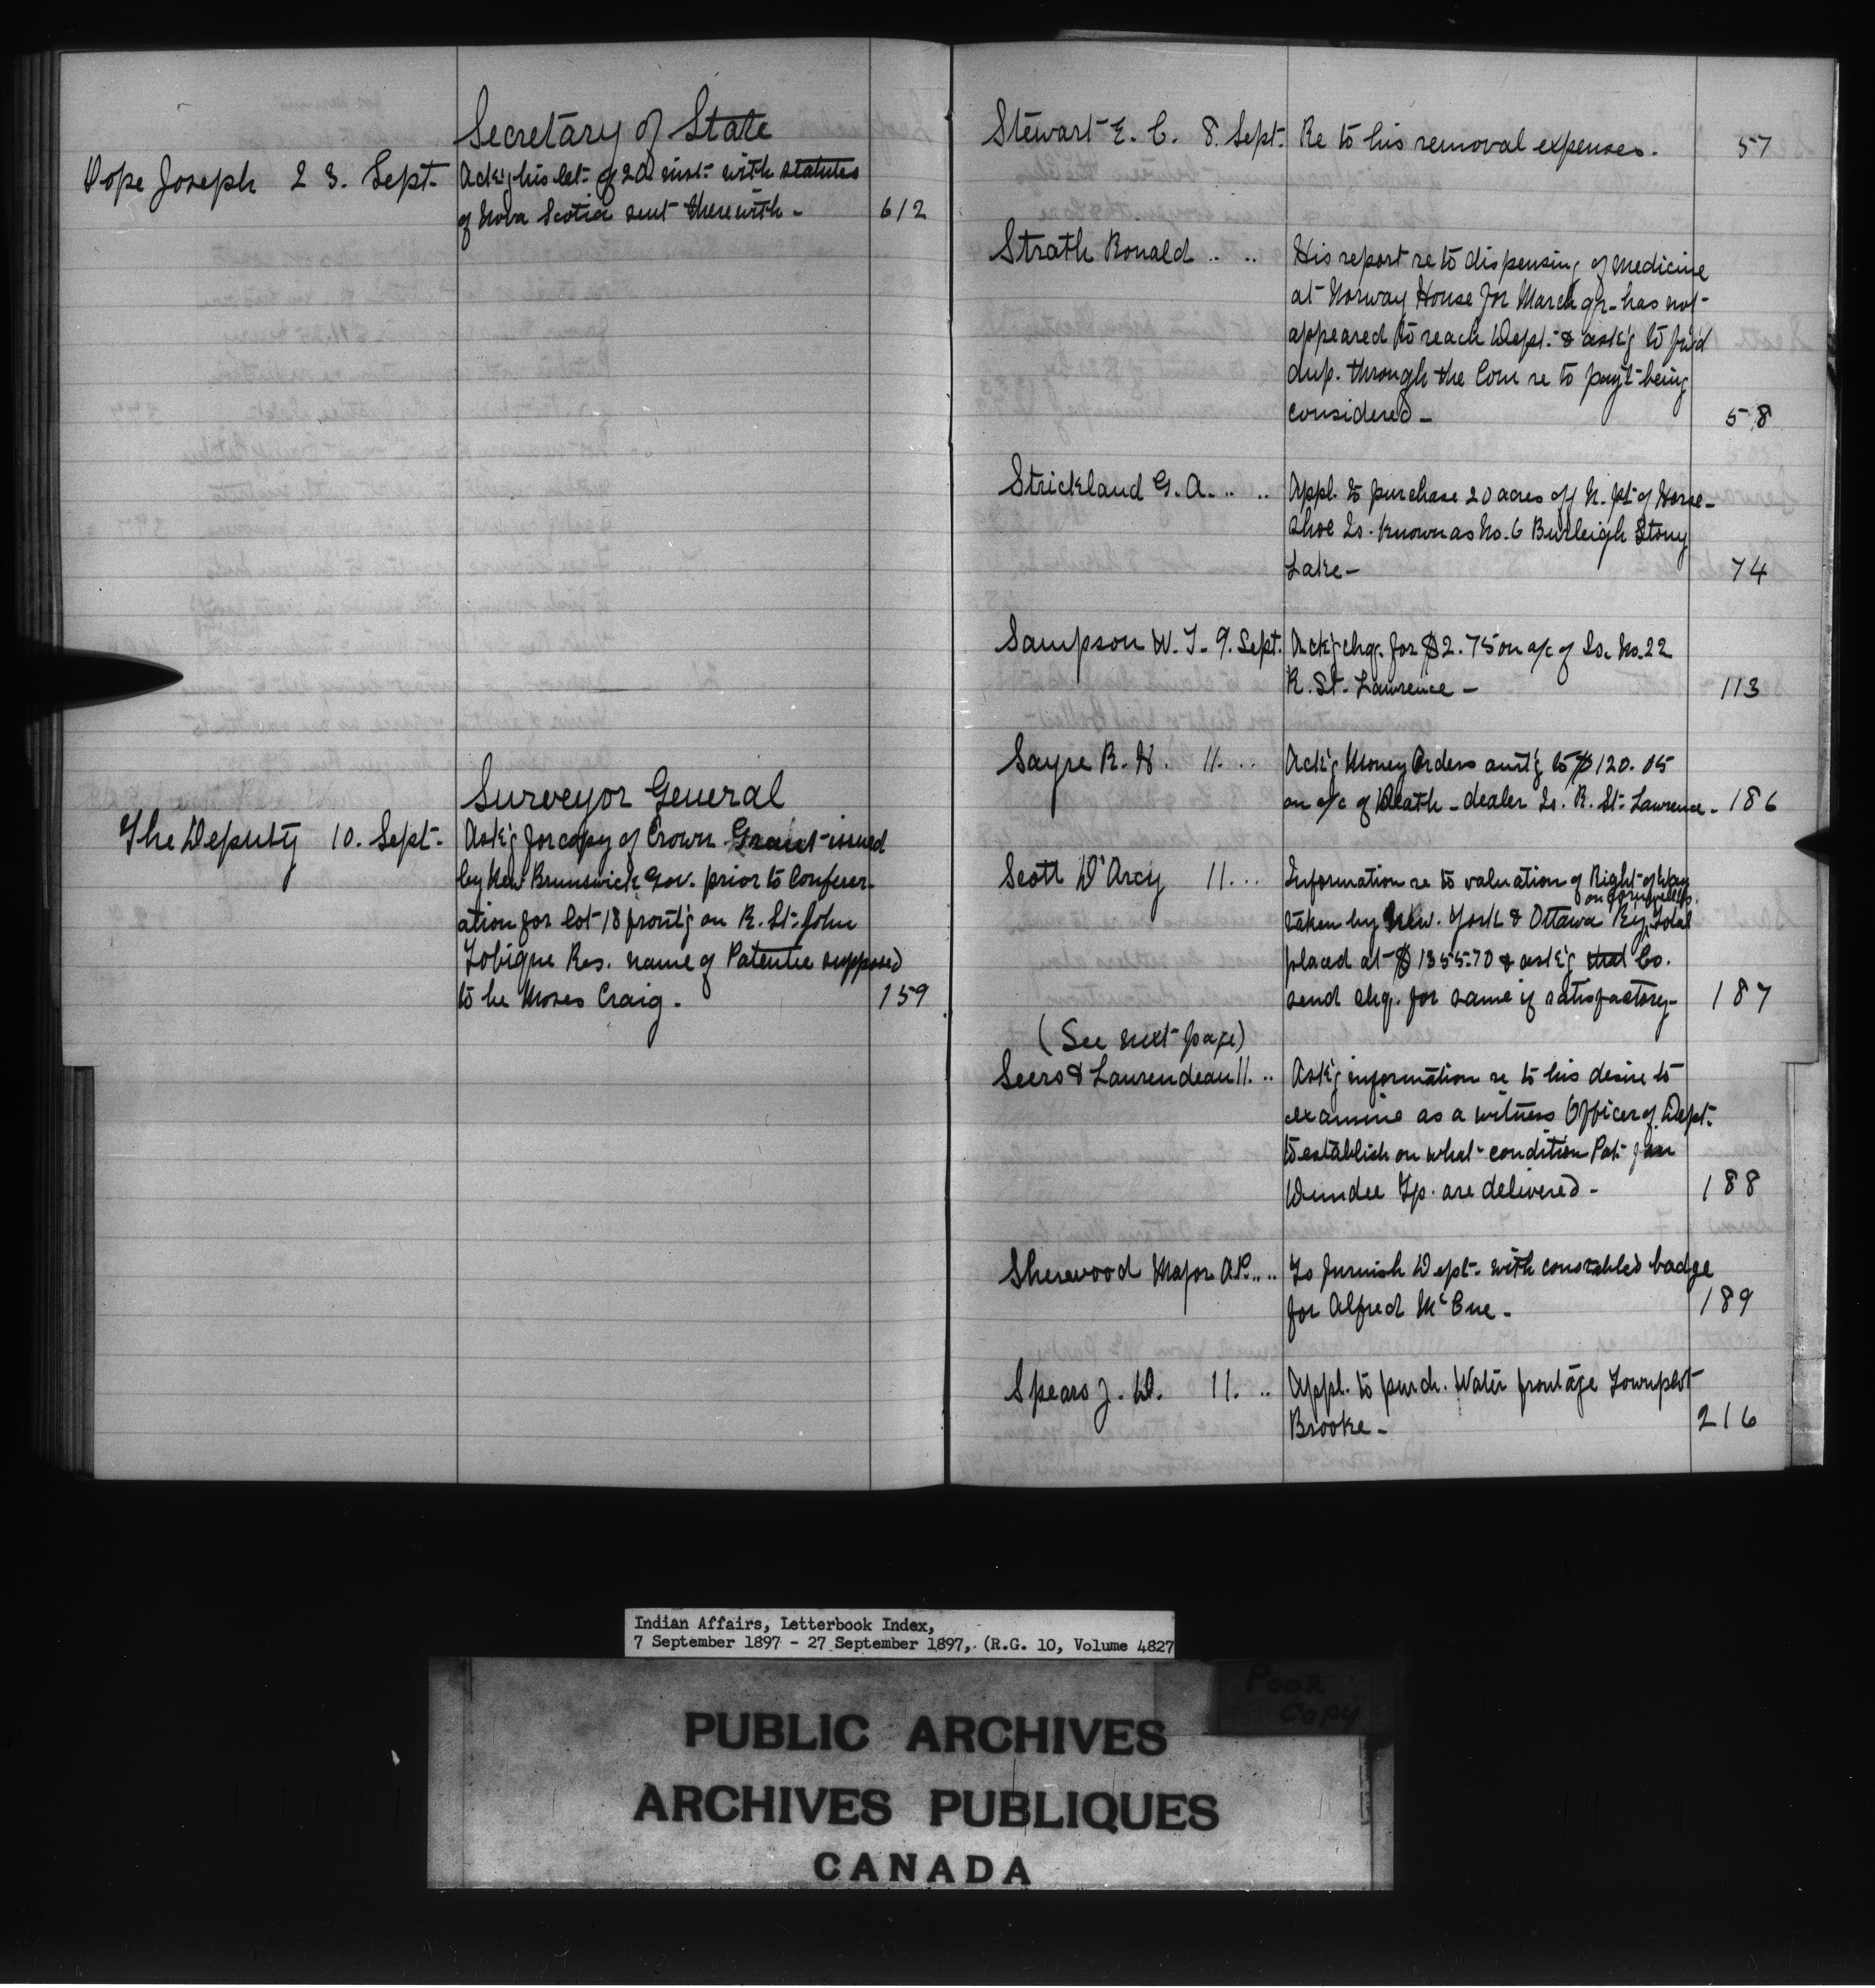 Secretary of State
Pope Joseph 23. Sept. Ack'g his let. of 20 inst. with statutes
of Nova Scotia sent therewith - 612
Surveyor General
The Deputy 10. Sept. Ask'g for copy of Crown Grant issued
by New Brunswick Gov. prior to Confeder-
ation for lot 18 front'g on R. St. John
Tobique Res. name of Patentee supposed
to be Moses Craig. 159
Stewart E. C. 8. Sept. Re to his removal expenses. 57
Strath Ronald .. .. His report re to dispensing of medicine
at Norway House for March qr. has not
appeared to reach Dept. & ask'g to fw'd
dup. through the Com re to pay't being
considered - 58
Strickland G. A. .. .. Appl. to purchase 20 acres off N. pt. of Horse-
shoe Is. known as No. 6 Burleigh Stony
Lake - 74
Sampson W. J. 9. Sept. Ack'g chq. for $2.75 on a/c of Is. No. 22
R. St. Lawrence - 113
Sayre R. H. 11. .. Ack'g Money Orders amt'g to $120.05
on a/c of Death-dealer Is. R. St. Lawrence - 186
Scott D'Arcy 11. .. Information re to valuation of Right of Way
on Cornwall Is.
taken by New. York & Ottawa Ry. Total
placed at $1355.70 & ask'g that Co.
send chq. for same if satisfactory - 187
(See next page)
Seers & Laurendeau 11. .. Ask'g information re to his desire to
examine as a witness Officer of Dept.
to establish on what condition Pat. for
Dundee Tp. are delivered - 188
Sherwood Major A.P. .. .. To furnish Dept. with constable's badge
for Alfred McCue - 189
Spears J. D. 11. .. Appl. to purch. Water frontage Townplot
Brooke - 216
Indian Affairs, Letterbook Index,
7 September 1897 - 27 September 1897, (R.G. 10, Volume 4827
POOR
COPY
PUBLIC ARCHIVES
ARCHIVES PUBLIQUES
CANADA